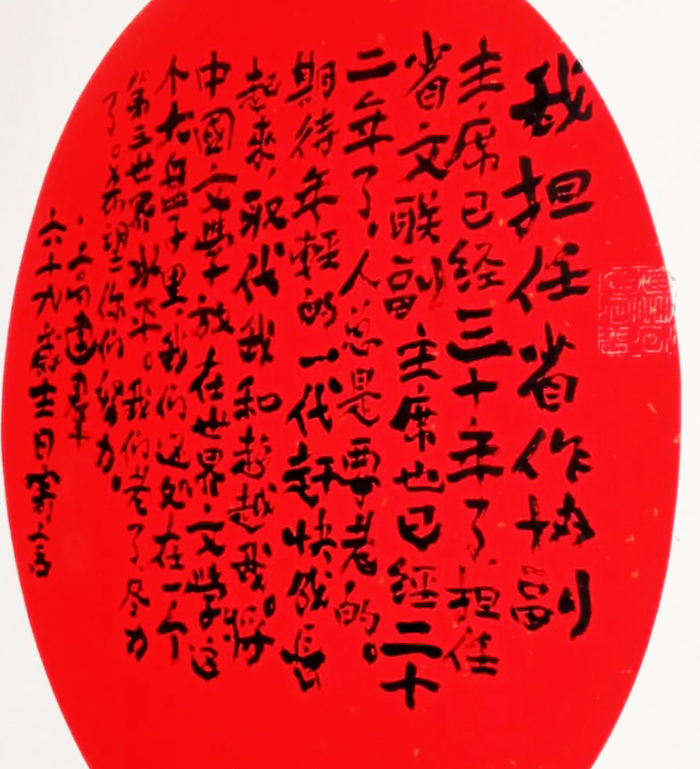 我担任省作协副
主席已经三十年了，担任
省文联副主席也已經二十
二年了，人总是要老的。
期待年輕的一代赶快成長
起來，取代我和超越我。將
中國文學放在世界文學這
个大盘子里，我们还处在一个
第三世界水平。我们老了，尽力
了。希望你们努力。
高建群
六十九歲生日寄言